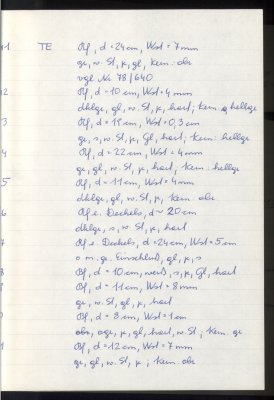 41 TE Rf, d = 24 cm, Wst = 7 mm
ge, w. St, k, gl, Kern: obe
vgl Nr. 78/640
2 Rf, d = 10 cm, Wst = 4 mm
dklge, gl, w. St, k, hart; Kern: hellge
3 Rf, d = 19 cm, Wst = 0,3 cm
ge, s, w. St, k, Gl, hart; Kern: hellge
4 Rf, d = 22 cm, Wst = 4 mm
ge, gl, w. St, k, hart; Kern: hellge
5 Rf, d = 11 cm, Wst = 4 mm
dklge, gl, w. St, k, Kern: obe
6 Rf e. Deckels, d ~ 20 cm
dklge, s, w. St, k, hart
7 Rf e. Deckels, d = 24 cm, Wst = 5 cm
o m. ge. Einschluß, gl, k, s
8 Rf, d = 10 cm, weiß, s, k, Gl, hart
Rf, d = 11 cm, Wst = 8 mm
ge, w. St, gl, k, hart
Rf, d = 8 cm, Wst = 1 cm
oge, k, gl, hart, w. St; Kern: ge
Rf, d = 12 cm, Wst = 7 mm
ge, gl, w. St, k; Kern: obe